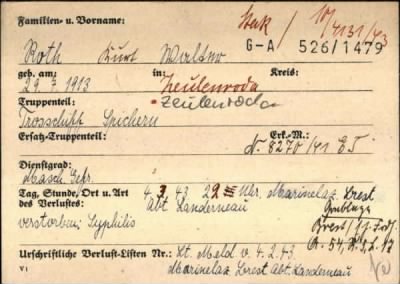 Familien- u. Vorname:
10/4131/43
G-A 526/1479
Roth Kurt Walter
geb. am: in: Kreis:
29.7.1913 Zeulenroda
Zeulenroda
Truppenteil:
Trosschiff Spichern
Ersatz-Truppenteil: Erk.-M.:
N. 8270/41 ET
Dienstgrad:
Masch. Gefr.
Tag, Stunde, Ort u. Art des Verlustes:
4. 3. 43 22 Uhr, Marinelaz. Brest
Abt. Landerneau
verstorben: Syphilis
Brest
Urschriftliche Verlust-Listen Nr.: Lt. Meld v. 4.2.43.
Marinelaz Brest Abt. Landerneau
V1